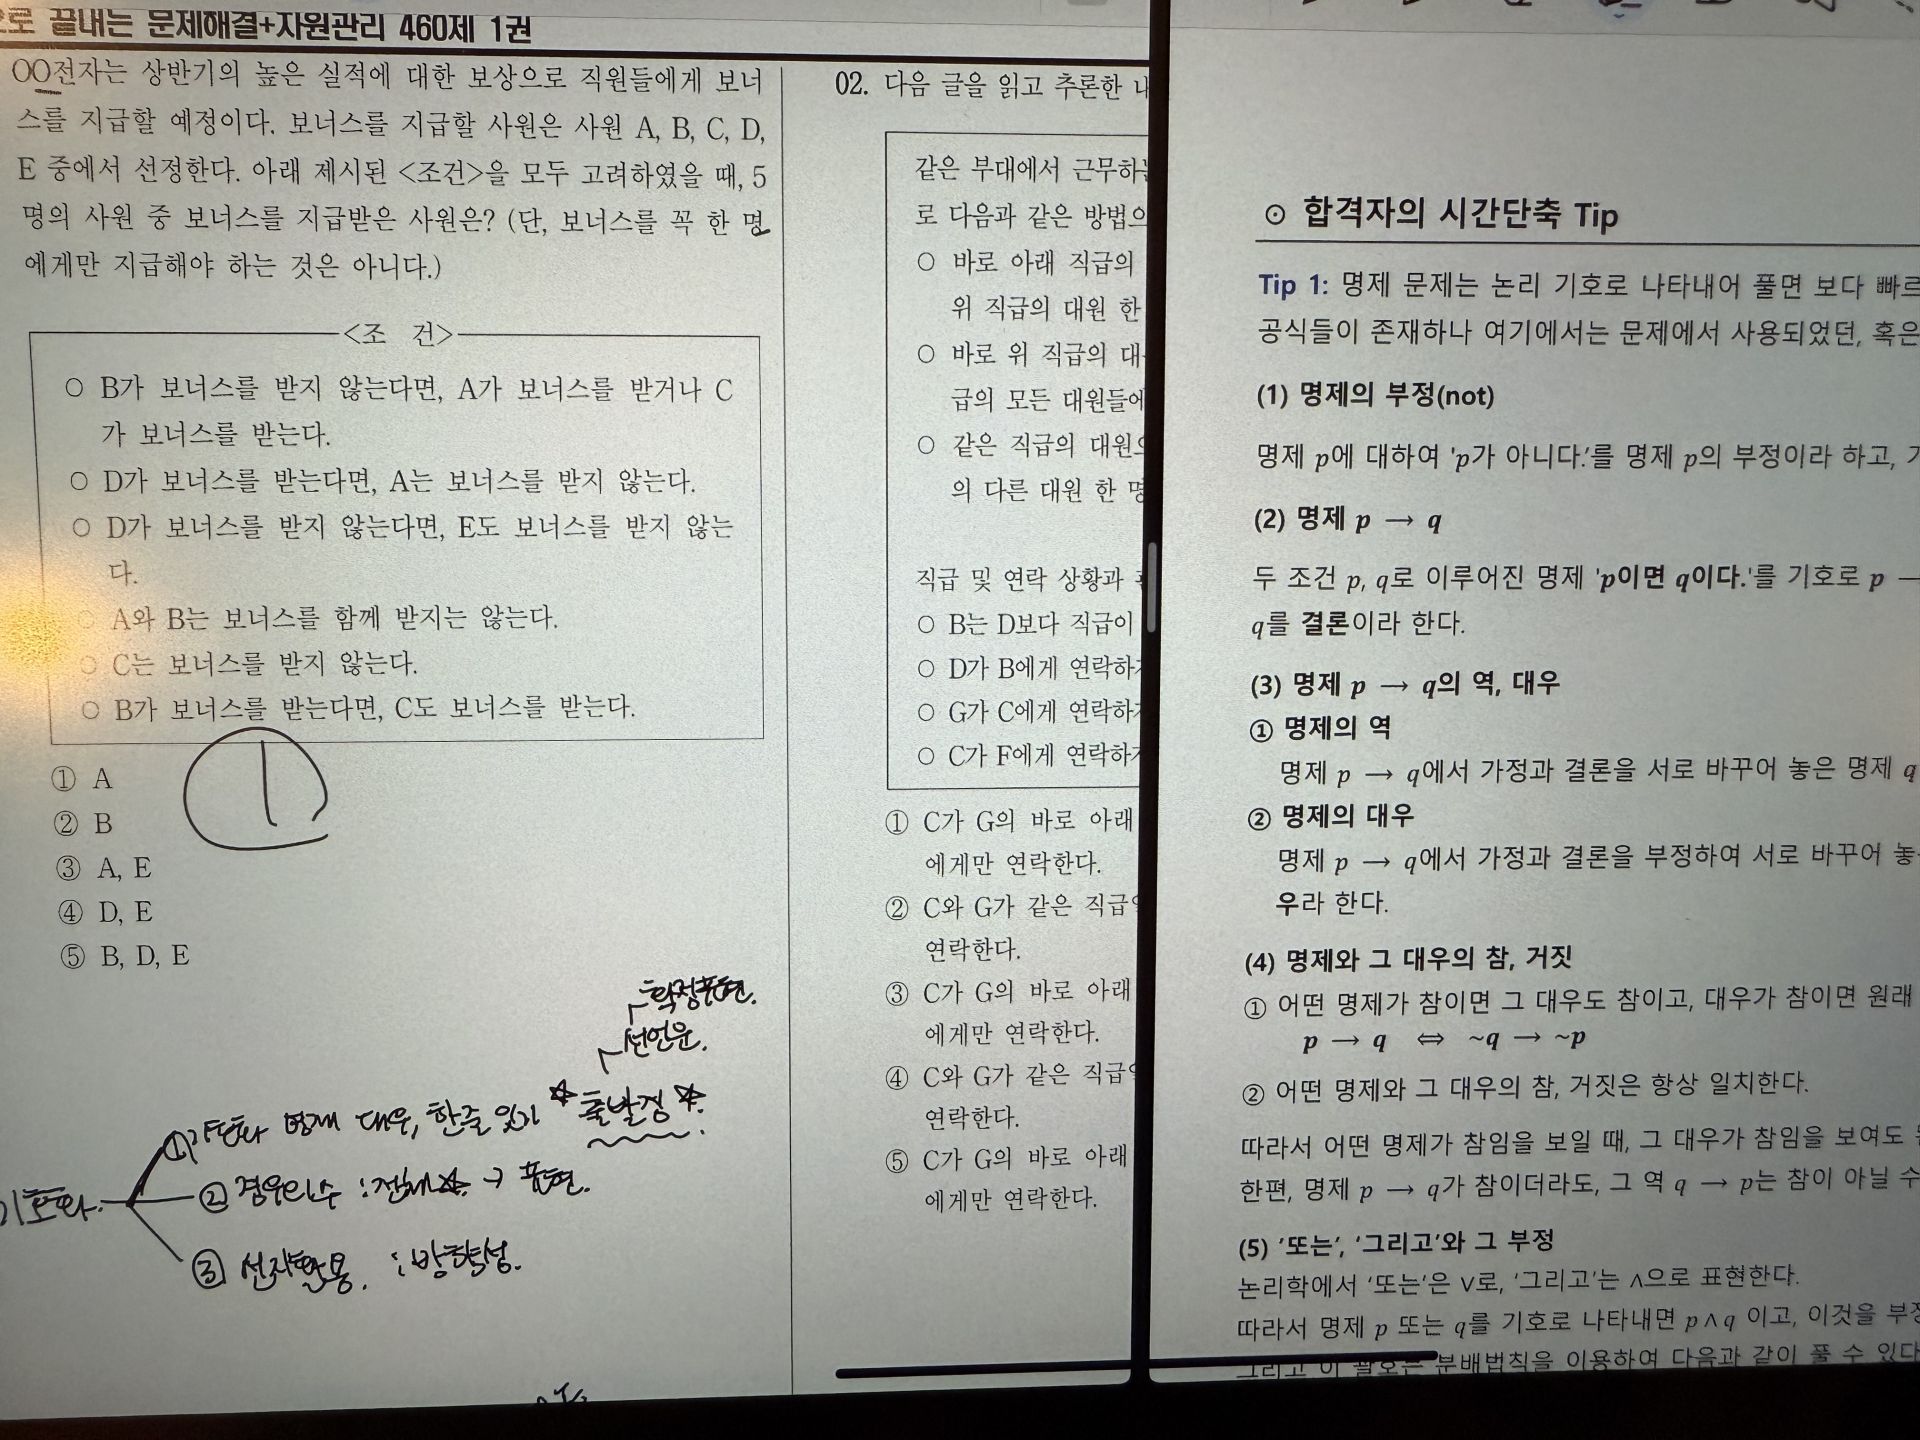 로 끝내는 문제해결+자원관리 460제 1권
OO전자는 상반기의 높은 실적에 대한 보상으로 직원들에게 보너
스를 지급할 예정이다. 보너스를 지급할 사원은 사원 A, B, C, D,
E 중에서 선정한다. 아래 제시된 <조건>을 모두 고려하였을 때, 5
명의 사원 중 보너스를 지급받은 사원은? (단, 보너스를 꼭 한 명
에게만 지급해야 하는 것은 아니다.)
<조 건>
○ B가 보너스를 받지 않는다면, A가 보너스를 받거나 C
가 보너스를 받는다.
○ D가 보너스를 받는다면, A는 보너스를 받지 않는다.
○ D가 보너스를 받지 않는다면, E도 보너스를 받지 않는
다.
○ A와 B는 보너스를 함께 받지는 않는다.
○ C는 보너스를 받지 않는다.
○ B가 보너스를 받는다면, C도 보너스를 받는다.
① A
② B
③ A, E
④ D, E
⑤ B, D, E
①
확정표현.
선언문.
①기호화 명제 대우, 한줄 잇기 ☆출발점☆.
기호화
②경우의수 : 전체☆ → 표현.
③ 선지활용. : 방향성.
02. 다음 글을 읽고 추론한 내
같은 부대에서 근무하는
로 다음과 같은 방법으
○ 바로 아래 직급의
위 직급의 대원 한
○ 바로 위 직급의 대
급의 모든 대원들에
○ 같은 직급의 대원으
의 다른 대원 한 명
직급 및 연락 상황과
○ B는 D보다 직급이
○ D가 B에게 연락하
○ G가 C에게 연락하
○ C가 F에게 연락하
① C가 G의 바로 아래
에게만 연락한다.
② C와 G가 같은 직급
연락한다.
③ C가 G의 바로 아래
에게만 연락한다.
④ C와 G가 같은 직급
연락한다.
⑤ C가 G의 바로 아래
에게만 연락한다.
⊙ 합격자의 시간단축 Tip
Tip 1: 명제 문제는 논리 기호로 나타내어 풀면 보다 빠르
공식들이 존재하나 여기에서는 문제에서 사용되었던, 혹은
(1) 명제의 부정(not)
명제 p에 대하여 'p가 아니다.'를 명제 p의 부정이라 하고, 기
(2) 명제 p → q
두 조건 p, q로 이루어진 명제 'p이면 q이다.'를 기호로 p →
q를 결론이라 한다.
(3) 명제 p → q의 역, 대우
① 명제의 역
명제 p → q에서 가정과 결론을 서로 바꾸어 놓은 명제 q
② 명제의 대우
명제 p → q에서 가정과 결론을 부정하여 서로 바꾸어 놓
우라 한다.
(4) 명제와 그 대우의 참, 거짓
① 어떤 명제가 참이면 그 대우도 참이고, 대우가 참이면 원래
p → q ⇔ ~q → ~p
② 어떤 명제와 그 대우의 참, 거짓은 항상 일치한다.
따라서 어떤 명제가 참임을 보일 때, 그 대우가 참임을 보여도
한편, 명제 p → q가 참이더라도, 그 역 q → p는 참이 아닐 수
(5) '또는', '그리고'와 그 부정
논리학에서 '또는'은 ∨로, '그리고'는 ∧으로 표현한다.
따라서 명제 p 또는 q를 기호로 나타내면 p∧q 이고, 이것을 부정
그리고 이 괄호는 분배법칙을 이용하여 다음과 같이 풀 수 있다